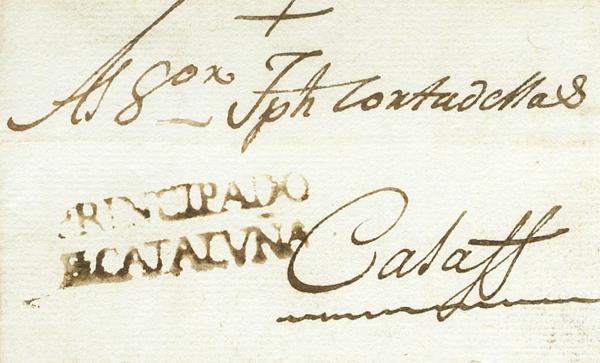 Al Sor Jph Tortadellas
PRINCIPADO
DE CATALVÑA
Calaff